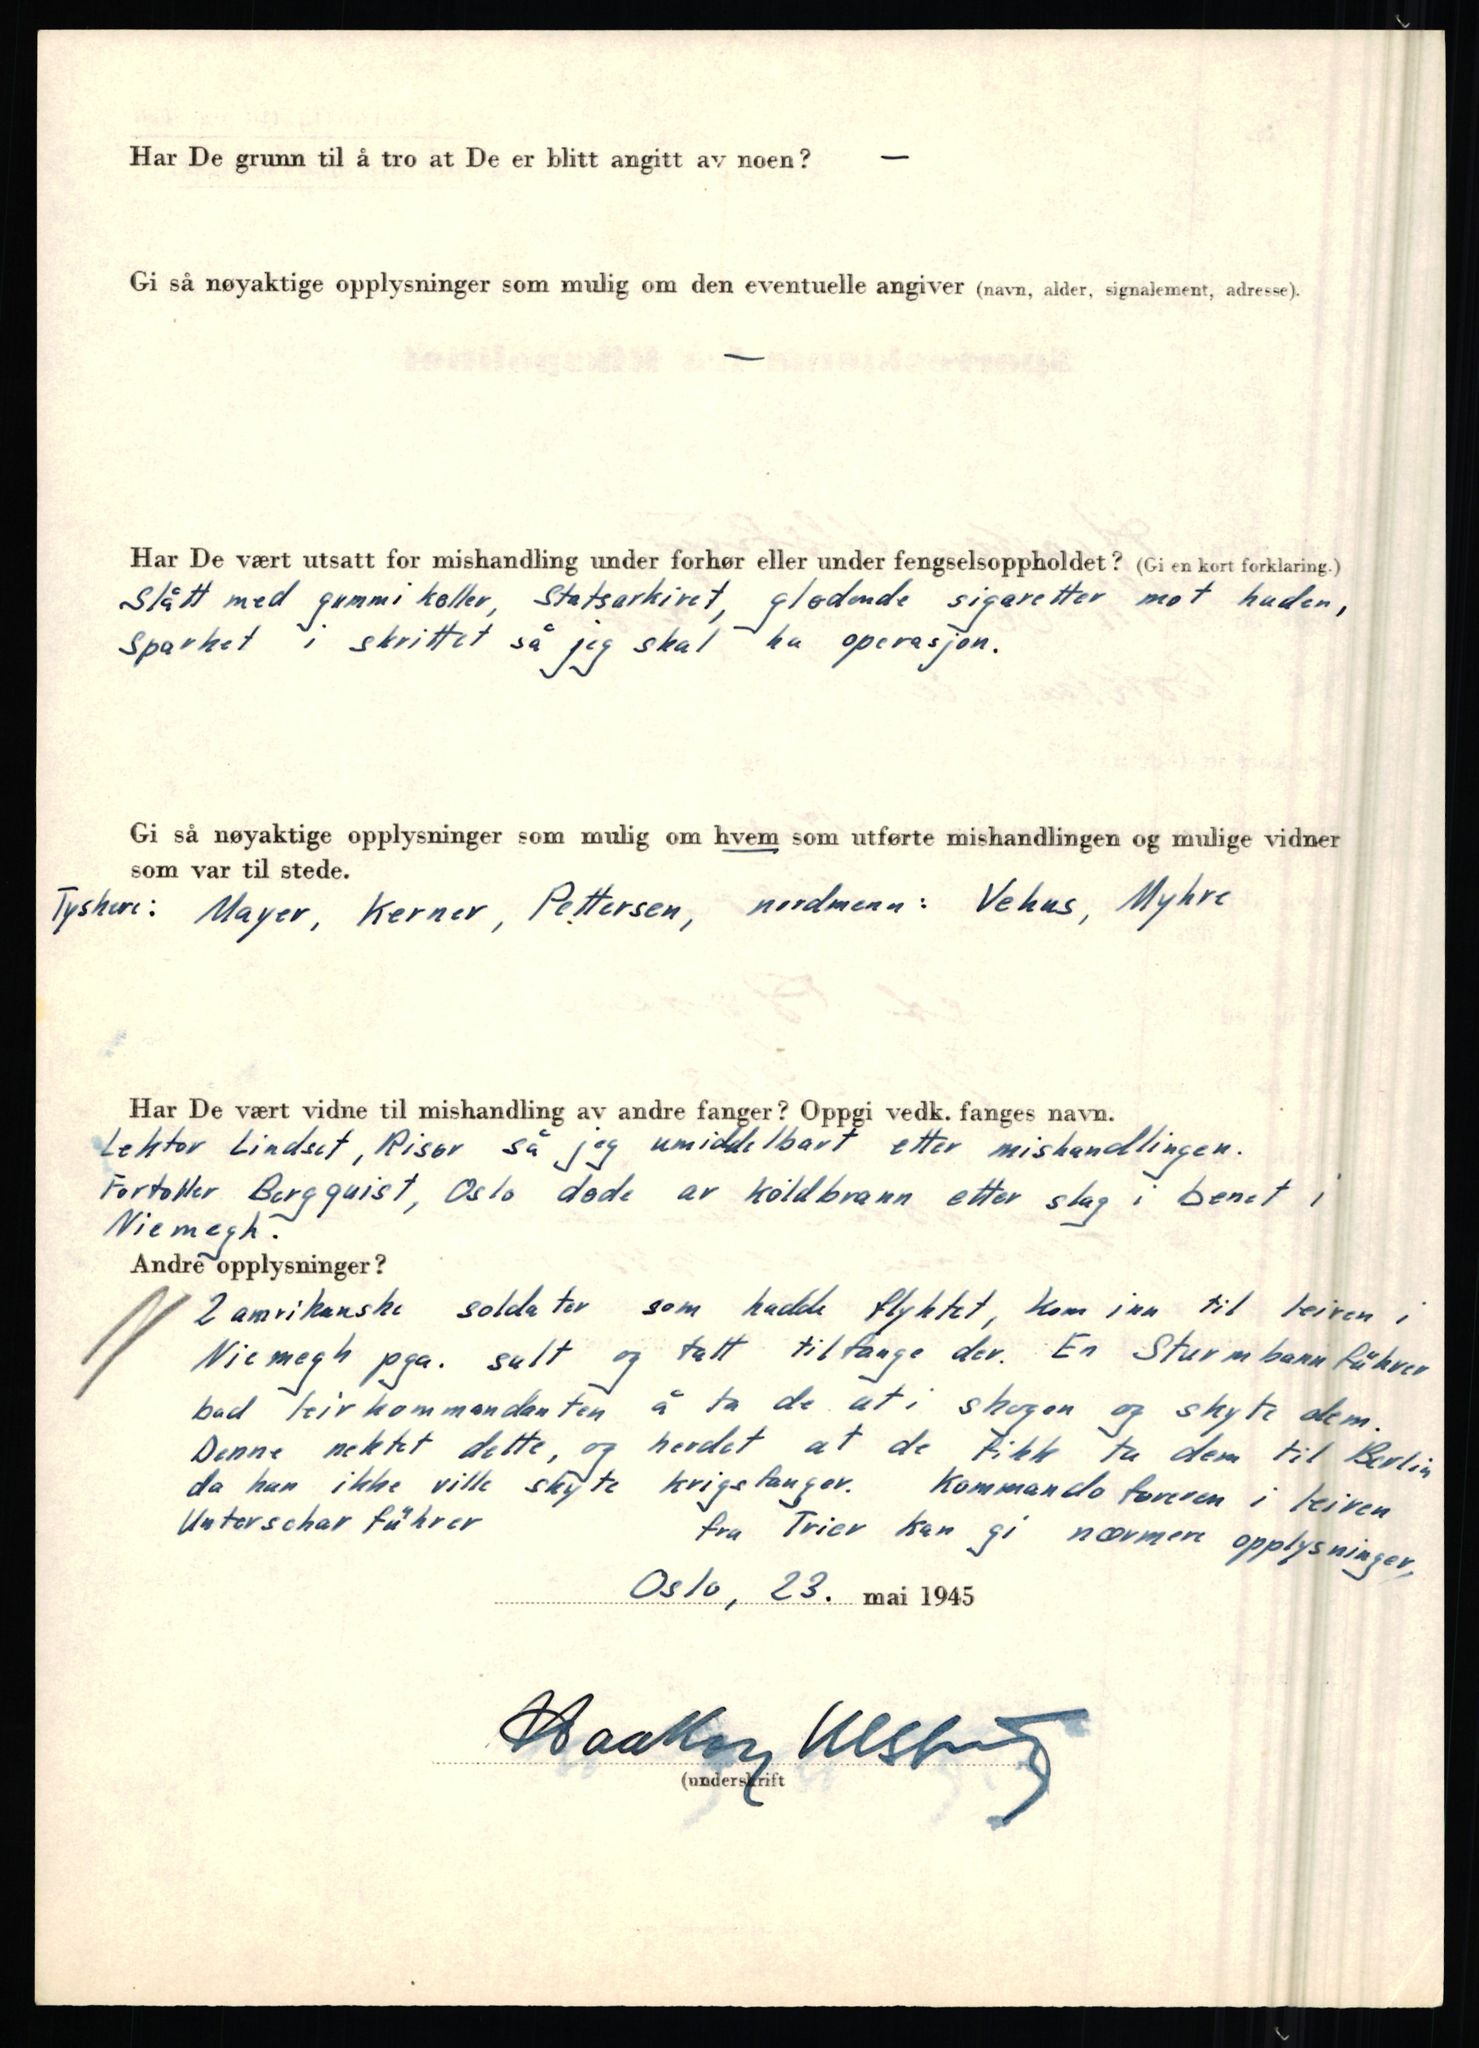 Har De grunn til å tro at De er blitt angitt av noen? —
Gi så nøyaktige opplysninger som mulig om den eventuelle angiver (navn, alder, signalement, adresse).
—
Har De vært utsatt for mishandling under forhør eller under fengselsoppholdet? (Gi en kort forklaring.)
Slått med gummikøller, Statsarkivet, glødende sigaretter mot huden,
sparket i skrittet så jeg skal ha operasjon.
Gi så nøyaktige opplysninger som mulig om hvem som utførte mishandlingen og mulige vidner
som var til stede.
Tyskere: Mayer, Kerner, Pettersen, nordmenn: Vehus, Myhre
Har De vært vidne til mishandling av andre fanger? Oppgi vedk. fanges navn.
Lektor Lindset, Risør så jeg umiddelbart etter mishandlingen.
Forfatter Bergquist, Oslo døde av koldbrann etter slag i benet i
Niemegh.
Andre opplysninger?
2 amrikanske soldater som hadde flyktet, kom inn til leiren i
Niemegh pga. sult og tatt tilfange der. En Sturmbannführer
bad leirkommandanten å ta de ut i skogen og skyte dem.
Denne nektet dette, og hevdet at de fikk ta dem til Berlin
da han ikke ville skyte krigsfanger. Kommandoføreren i leiren
Unterscharführer fra Trier kan gi nærmere opplysninger.
Oslo, 23. mai 1945
Haakon
(underskrift